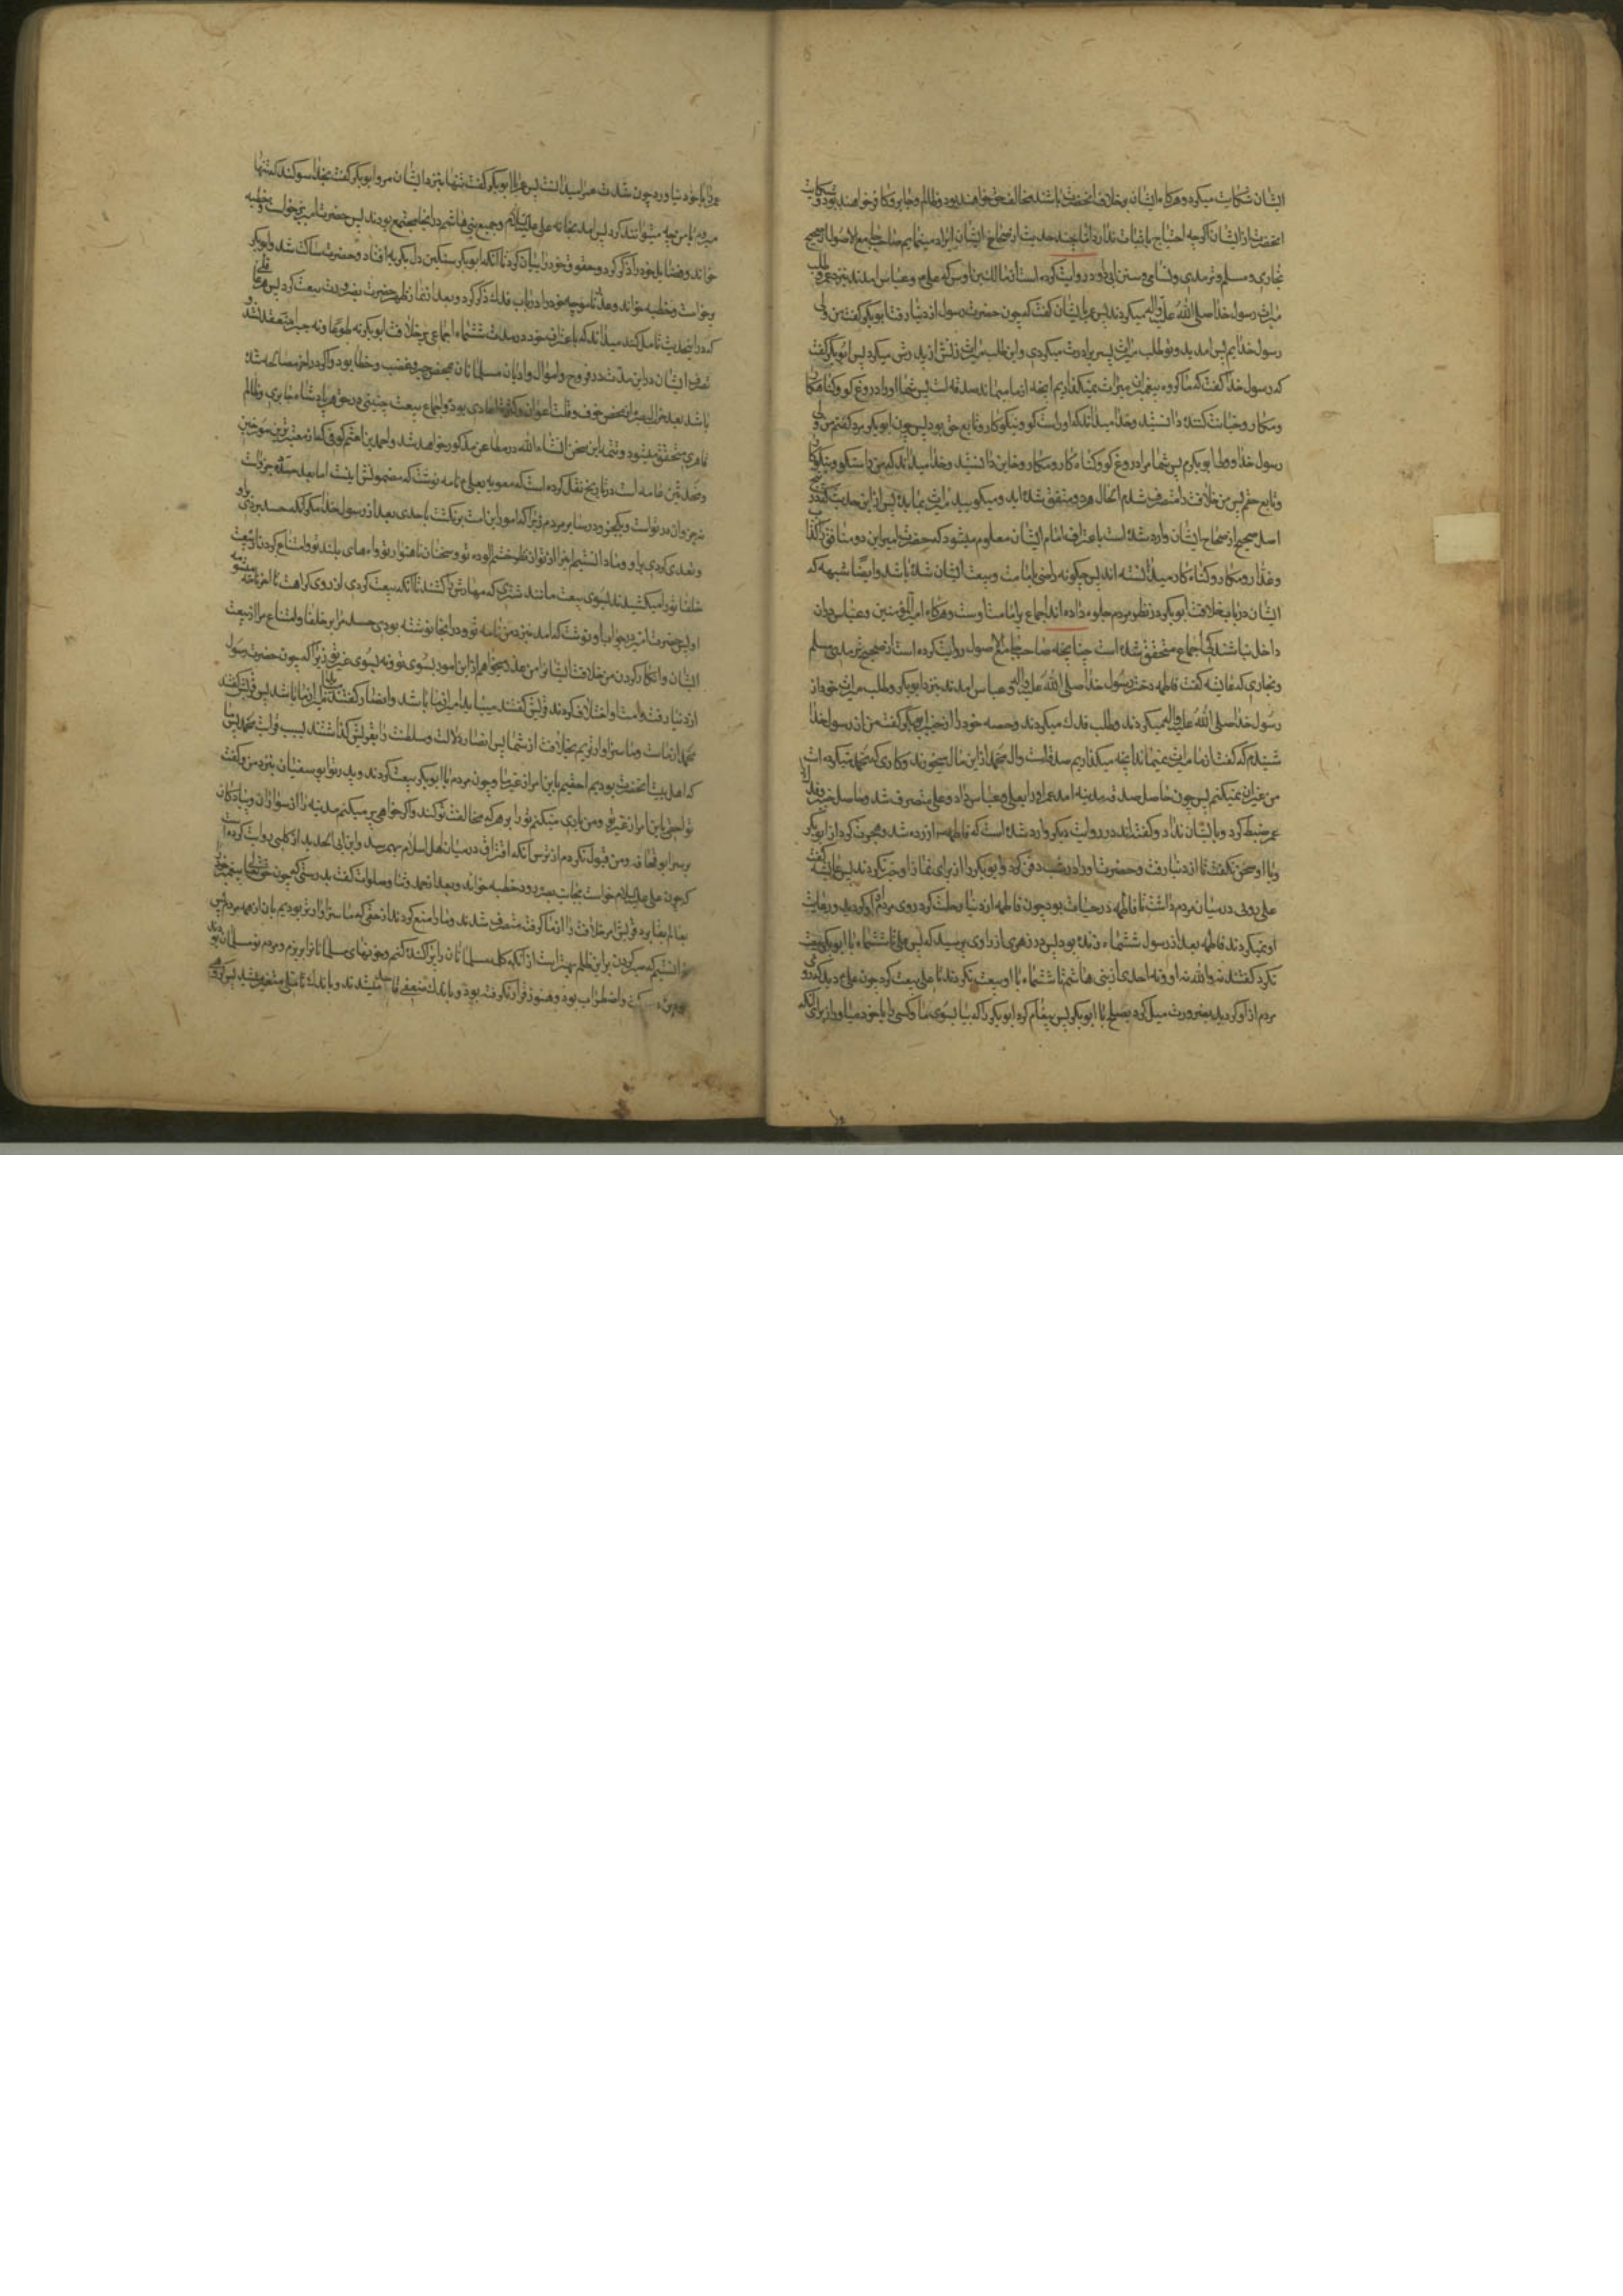 ایشان شکایت میکرد و هرگاه ایشان بر خلاف آنحضرت باشند مخالف حق خواهند بود و ظالم و جابر و کافر خواهند بود و شکایت
آنحضرت از ایشان اگرچه احتیاج باثبات ندارد اما بچند حدیث از صحاح ایشان ایراد مینمایم صاحب جامع الاصول از صحیح
بخاری و مسلم و ترمدی و نسائی و سنن ابی داود روایت کرده است از مالک بن اوس که علی و عباس امدند بنزد عمر و طلب
میراث رسول خدا صلی الله علیه و اله میکردند پس عمر بایشان گفت که چون حضرت رسول از دنیا رفت ابوبکر گفت من ولی
رسول خدایم پس امدید و تو طلب میراث پسر برادرت میکردی و این طلب میراث زنش از پدرش میکرد پس ابوبکر گفت
که رسول خدا گفت که ما گروه پیغمبران میراث نمیگذاریم آنچه از ما میماند صدقه است پس شما او را دروغ گو و گناه کار
و مکار و خیانت کننده دانستید و خدا میداند که او راست گو و نیکو کار و تابع حق بود پس چون ابوبکر مرد گفتم من ولی
رسول خدا و ولی ابوبکرم پس شما مرا دروغ گو و گناه کار و مکار و خاین دانستید و خدا میداند که من راستگو و نیکو کار
و تابع حقم پس من خلافت را متصرف شدم الحال هردو متفق شده اید و میگویید میراث بما بده پس از این حدیث که در
اصل صحیح از صحاح ایشان وارد شده است باعتراف امام ایشان معلوم میشود که حضرت امیر این دو منافق را کذاب
و غدار و مکار و گناه کار میدانسته اند پس چگونه راضی بامامت و بیعت ایشان شده باشد و ایضا شبهه که
ایشان در باب خلافت ابوبکر در نظر مردم جلوه داده اند اجماع بر امامت اوست و هرگاه امیرالمؤمنین و عباس در ان
داخل نباشند کی اجماع متحقق شده است چنانچه صاحب جامع الاصول روایت کرده است از صحیح ترمدی و مسلم
و بخاری که عایشه گفت فاطمه دختر رسول خدا صلی الله علیه و اله و عباس امدند بنزد ابوبکر و طلب میراث خود از
رسول خدا صلی الله علیه و اله میکردند و طلب فدک میکردند و حصه خود را از خیبر ابوبکر گفت من از رسول خدا
شنیدم که گفت از ما میراث نمیماند آنچه میگذاریم صدقه است و ال محمد از این مال میخورند و کاری که محمد میکرده است
من غیر ان نمیکنم پس چون حاصل صدقه مدینه امد عمر او را بعلی و عباس داد و علی متصرف شد و حاصل خیبر و فدک را
عمر ضبط کرد و بایشان نداد و گفته اند در روایت دیگر وارد شده است که فاطمه ازرده شد و هجرت کرد از ابوبکر
و با او سخن نگفت تا از دنیا رفت و حضرت او را در شب دفن کرد و ابوبکر را از برای نماز او خبر نکردند پس عایشه گفت
علی رویی در میان مردم داشت تا فاطمه در حیات بود چون فاطمه از دنیا رحلت کرد روی مردم از او گردید و رعایت
او نمیکردند فاطمه بعد از رسول ششماه زنده بود پس مرد زهری از راوی پرسید که پس علی تا ششماه با ابوبکر بیعت
نکرد گفت نه والله نه او و نه احدی از بنی هاشم تا ششماه با او بیعت نکردند تا علی بیعت کرد چون علی دید که روی
مردم از او گردید بضرورت میل کرد بصلح با ابوبکر پس پیغام کرد ابوبکر را که بیا بسوی ما و کسی را با خود میاور از برای آنکه
عمر را با خود نیاورد چون شدت عمر را میدانست پس عمر با ابوبکر گفت تنها بنزد ایشان مرو ابوبکر گفت بخدا سوگند که تنها
میروم با من چه میتوانند کرد پس امد بخانه علی علیه السلام و جمیع بنی هاشم در انجا مجتمع بودند پس حضرت امیر برخواست و خطبه
خواند و فضایل خود را ذکر کرد و حقوق خود را بیان کرد تا آنکه ابوبکر سنگین دل بگریه افتاد و حضرت ساکت شد و ابوبکر
برخواست و خطبه خواند و عذر ناموجه خود را در باب فدک ذکر کرد و بعد از نماز ظهر حضرت بضرورت بیعت کرد پس هر عاقلی
که در این حدیث تامل کند میداند که باعتراف خود در مدت ششماه اجماعی بر خلافت ابوبکر نه طوعا و نه جبرا منعقد نشد و
تصرف ایشان در این مدت در فروج و اموال و ادیان مسلمانان محض جبر و غصب و خطا بود و اگر در اخر مصالحه شده
باشد بعد خرابی بصره از محض خوف و قلت اعوان و کثرت اعادی بود و اجماع بیعت چنینی در حق هر پادشاه جابری و ظالم
قاهری متحقق میشود و تتمه این سخن انشاء الله در مطاعن مذکور خواهد شد و احمد بن اعثم کوفی که از معتبرترین مورخین
و محدثین عامه است در تاریخ نقل کرده است که معویه بعلی نامه نوشت که مضمونش اینست اما بعد حسد ده جزو است
نه جزو ان در تو است و یکجزو در سایر مردم زیرا که امور این امت برنگشت باحدی بعد از رسول خدا مگر آنکه حسد بردی بر او
و تعدی کردی بر او و ما دانستیم اینرا از تو از نظر خشم الوده تو و سخنان ناهنوار تو و اههای بلند تو و امتناع کردن از بیعت
خلفا تو را میکشیدند بسوی بیعت مانند شتری که مهارش را کشند تا آنکه بیعت کردی از روی کراهت تا اخر نامه شوم
او پس حضرت امیر در جواب او نوشت که امد بنزد من نامه تو و در انجا نوشته بودی حسد مرا بر خلفا و امتناع مرا از بیعت
ایشان و انکار کردن من خلافت ایشانرا من عذر نمیخواهم از این امور بسوی تو و نه بسوی غیر تو زیرا که چون حضرت رسول
از دنیا رفت و امت او اختلاف کردند قریش گفتند میباید امیر از ما باشد و انصار گفتند میباید امیر از ما باشد پس قریش گفتند
محمد از ماست و ما سزاوارتریم بخلافت از شما پس انصار ولایت و سلطنت را بقریش گذاشتند بسبب قرابت محمد پس ما
که اهل بیت آنحضرت بودیم احقیم باین امر از غیر ما و چون مردم با ابوبکر بیعت کردند و پدر تو ابو سفیان بنزد من و گفت
تو احقی باین امر از غیر تو و من یاری میکنم تو را بر هر که مخالفت تو کند و اگر خواهی پر میکنم مدینه را از سواران و پیادگان
بر پسر ابو قحافه و من قبول نکردم از ترس آنکه افتراق در میان اهل اسلام بهمرسد و ابن ابی الحدید از کلبی روایت کرده است
که چون علی علیه السلام خواست بجانب بصره رود خطبه خواند و بعد از حمد و ثنا و صلوات گفت بدرستی که چون حق تعالی پیغمبر خود را
بعالم بقا برد قریش امر خلافت را از ما گرفت متصرف شدند و ما را منع کردند از حقی که ما سزاوارتر بودیم بان از همه مردم پس
دانستم که صبر کردن بر این ظلم بهتر است از آنکه کلمه مسلمانان را پراکنده کنم و خونهای مسلمانانرا بریزم و مردم نو مسلمان بودند
و اضطراب بود و هنوز قرار نگرفته بود و باندک ضعفی فاسد میشدند و باندک تاملی متغیر میشد پس گروهی